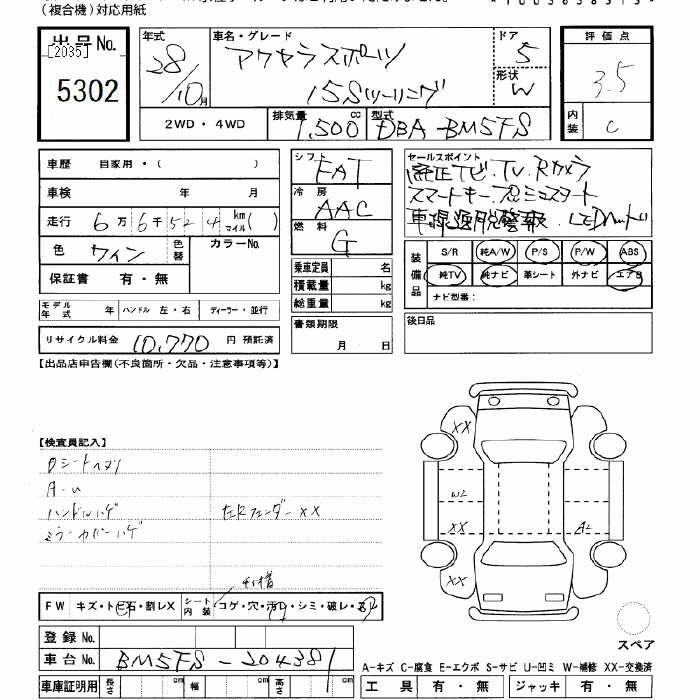 (複合機)対応用紙
出品No.
[2035]
5302
年式
28/10月
車名・グレード
アクセラスポーツ
15Sツーリング
ドア
5
形状
W
評価点
3.5
内装
C
2WD・4WD
排気量 1,500 cc
型式 DBA-BM5FS
車歴 自家用・( )
車検 年 月
走行 6万6千524 km マイル( )
色 ワイン 色替 カラーNo.
保証書 有・無
モデル年式 年 ハンドル 左・右 ディーラー・並行
リサイクル料金 10,770 円 預託済
シフト
FAT
冷房
AAC
燃料
G
乗車定員 名
積載量 kg
総重量 kg
書類期限
月 日
セールスポイント
純正ナビ.TV.Rカメラ
スマートキー.プッシュスタート
車線逸脱警報.LEDヘッド
装備品
S/R 純A/W P/S P/W ABS
純TV 純ナビ 革シート 外ナビ エアB
ナビ型番:
後日品
【出品店申告欄(不良箇所・欠品・注意事項等)】
【検査員記入】
Dシートヘタリ
A-U
ハンドルハゲ
ミラーカバーハゲ
左Rフェンダー××
FW キズ・トビ石・割レX
シート内装 コゲ・穴・汚レ・シミ・破レ
登録No.
車台No. BM5FS-204381
車庫証明用 長さ cm 幅 cm 高さ cm
XX
W2
XX
A2
XX
スペア
A-キズ C-腐食 E-エクボ S-サビ U-凹ミ W-補修 XX-交換済
工具 有・無 ジャッキ 有・無